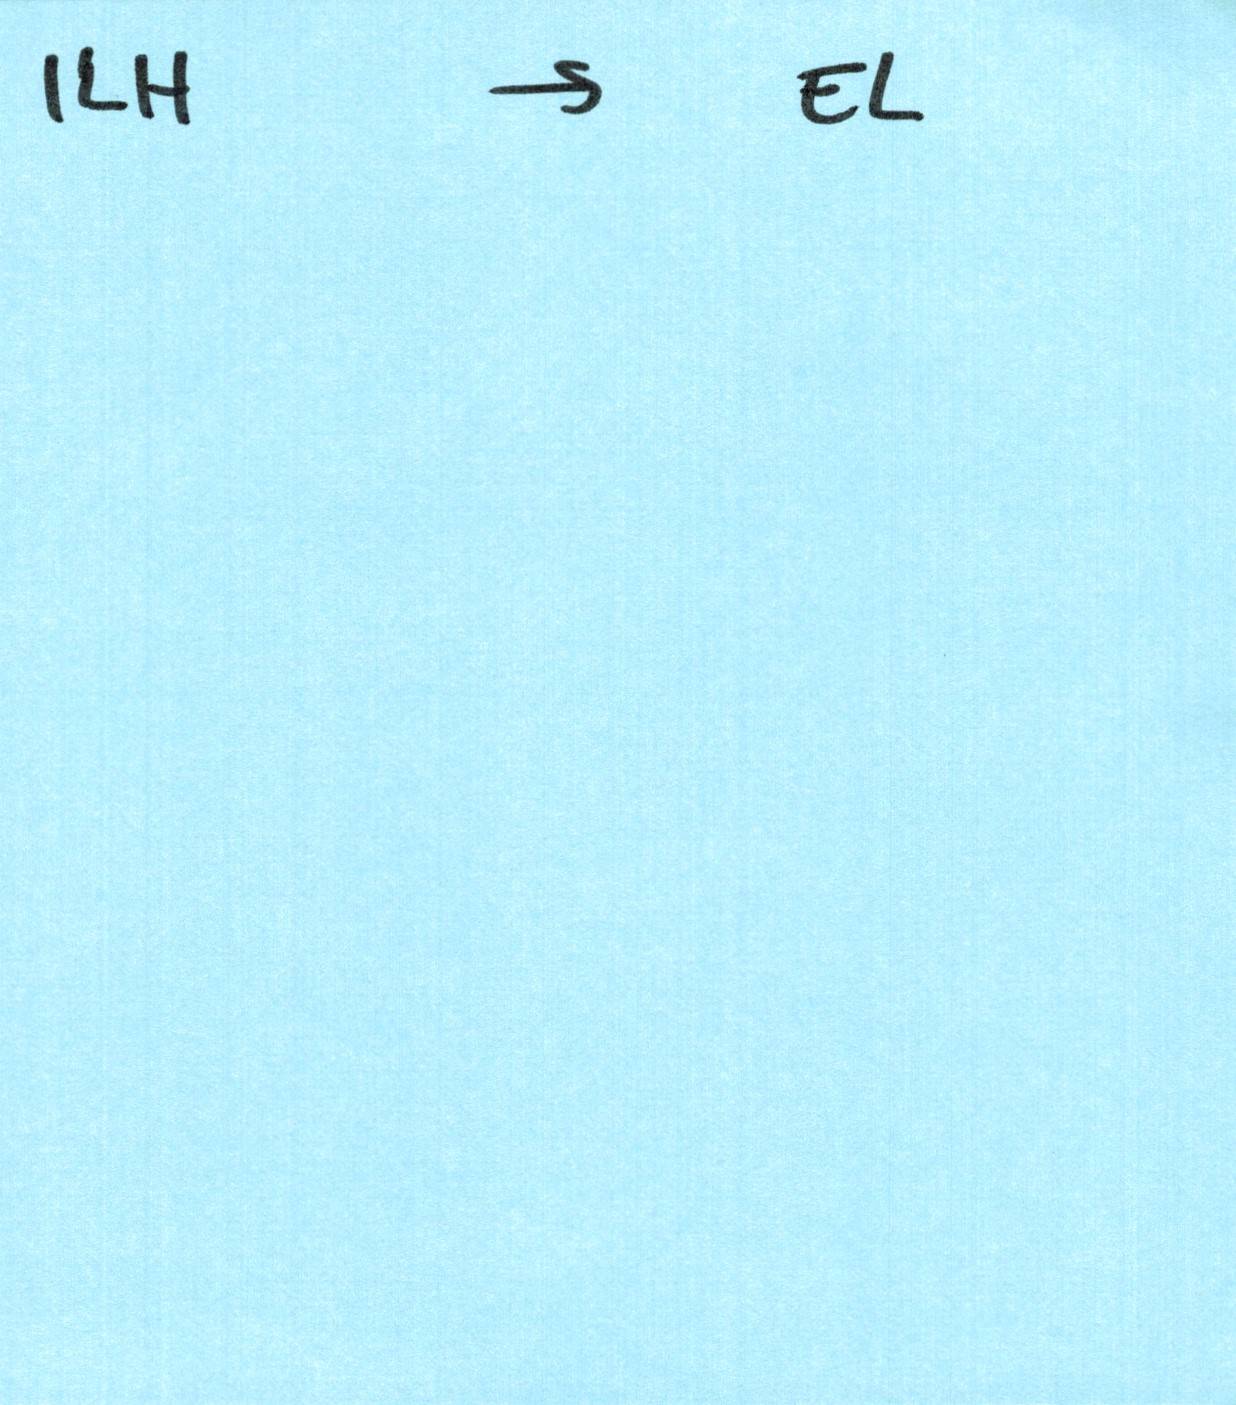 ILH → EL